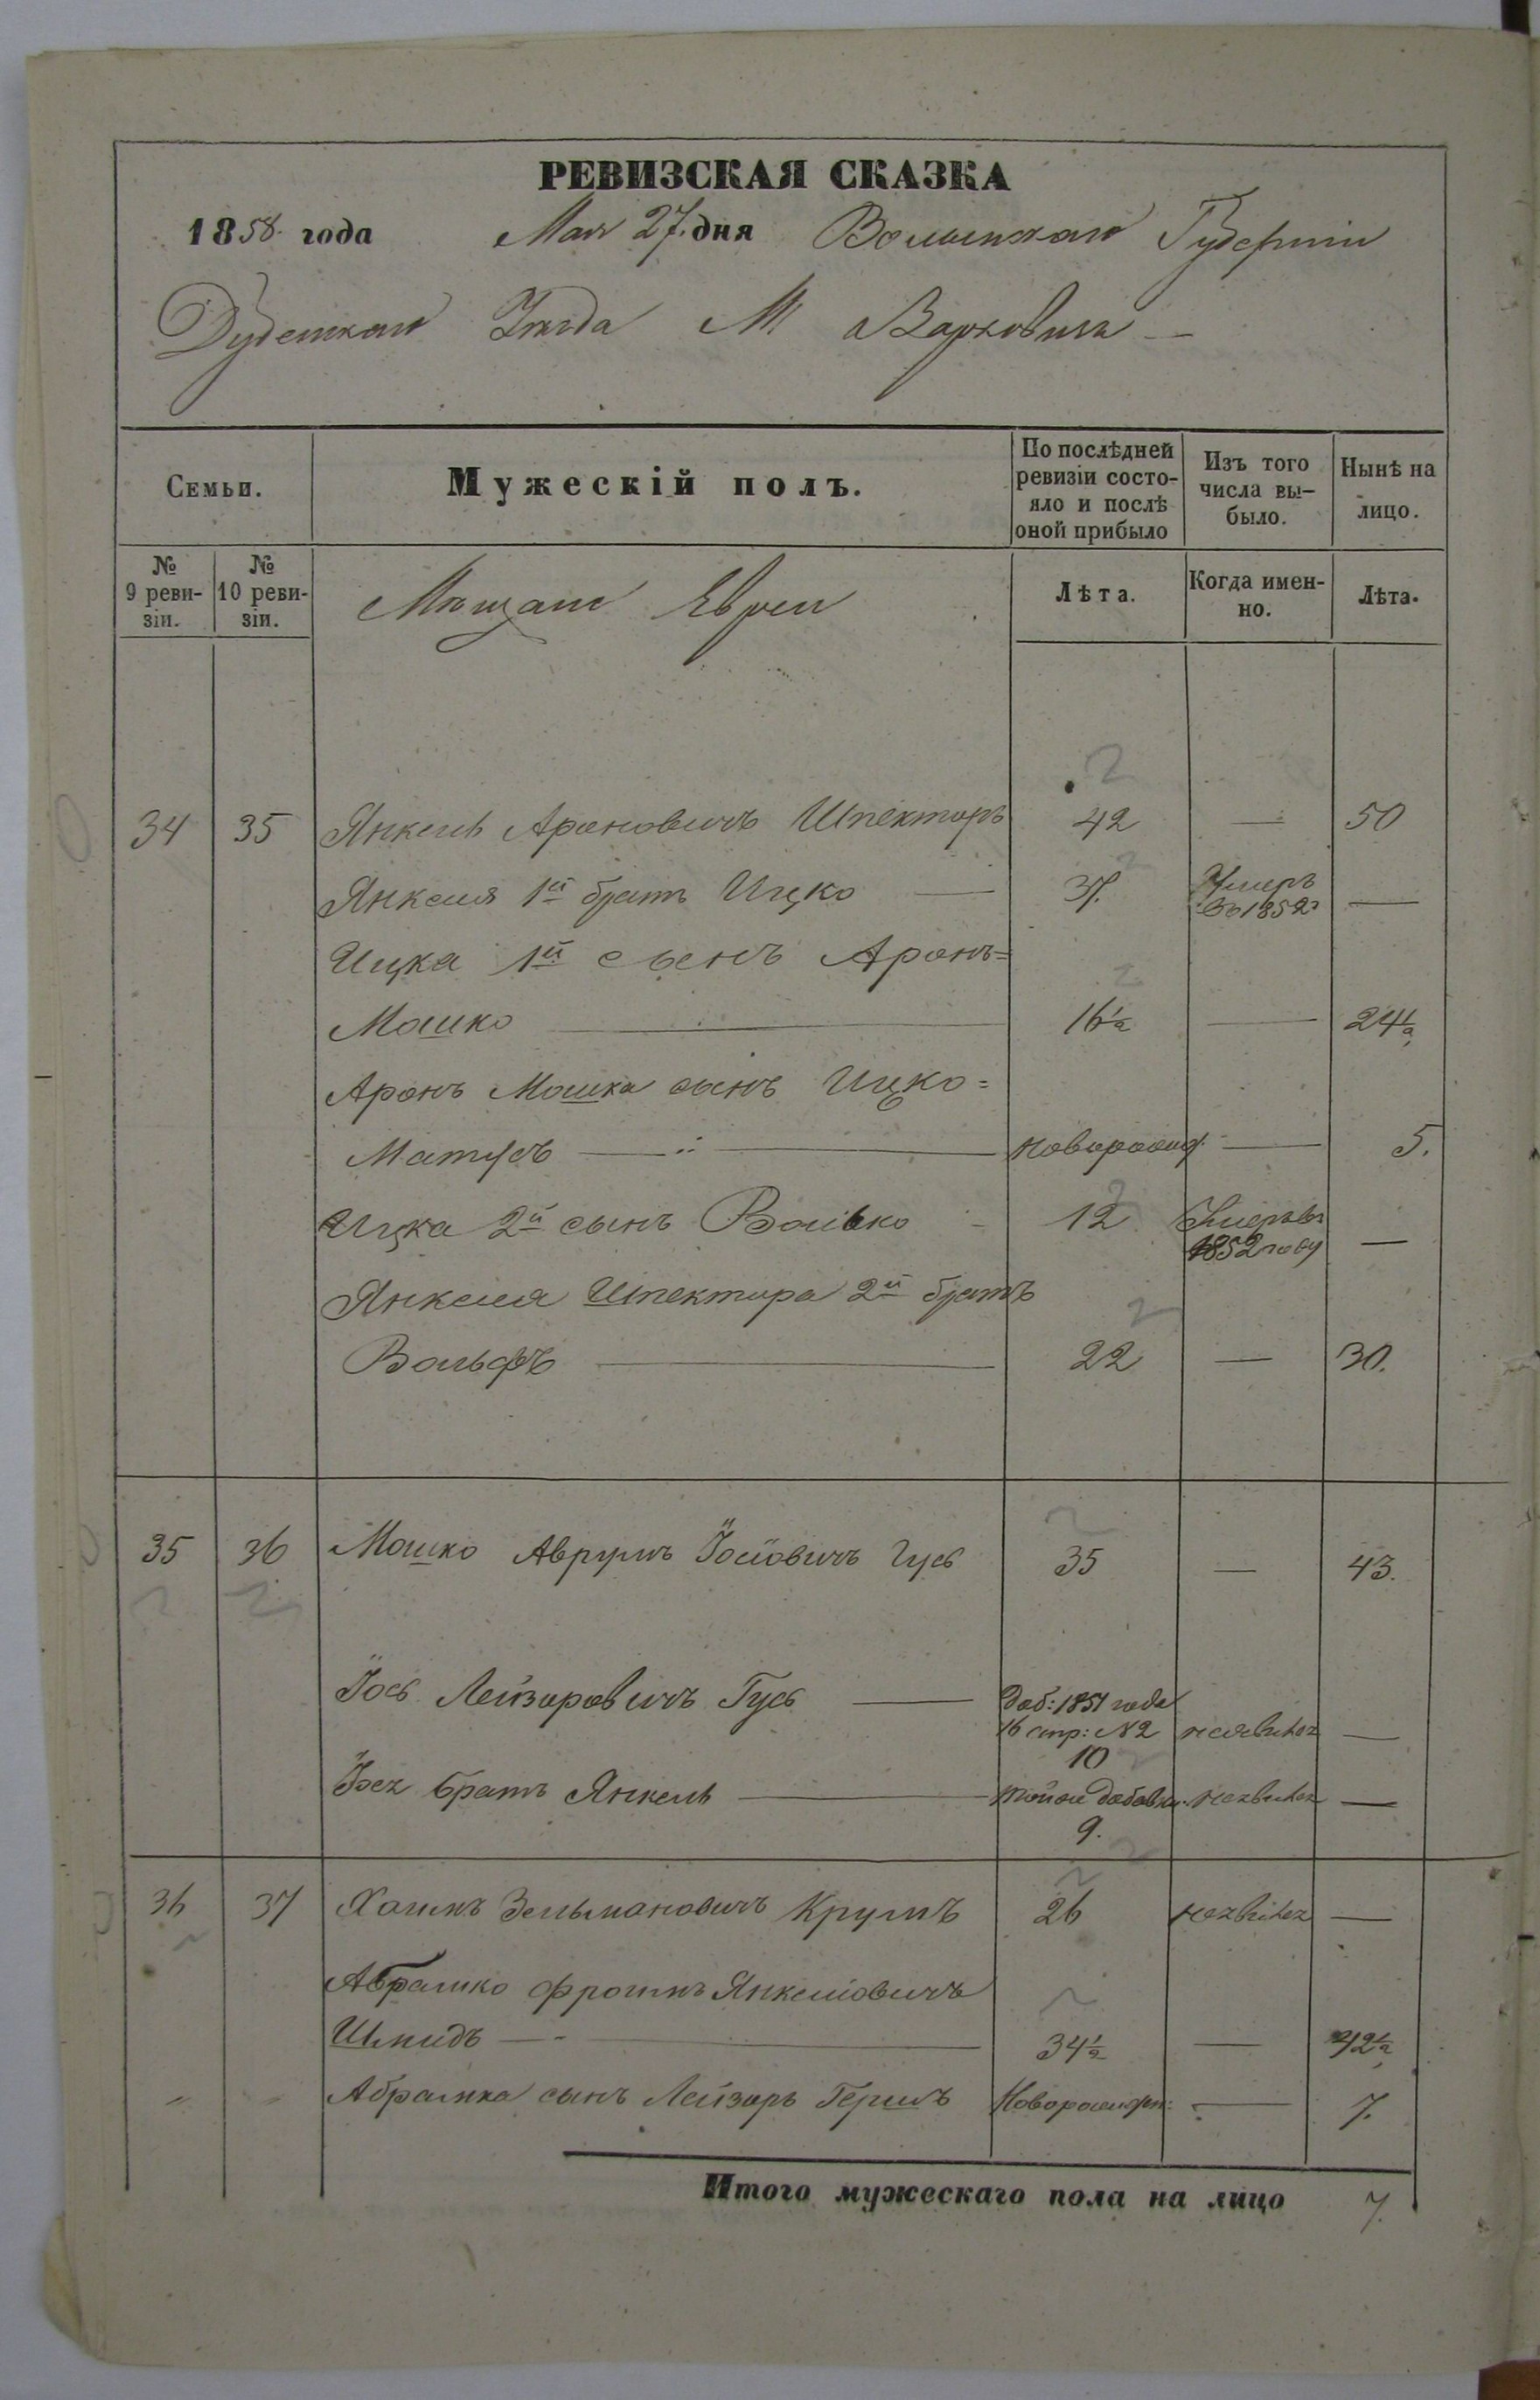 РЕВИЗСКАЯ СКАЗКА
1858. года Мая 27. дня Волынской Губерніи
Дубенскаго Уезда М Варковичь —
Семьи.
Мужескій полъ.
По послѣдней ревизіи состо-
яло и послѣ оной прибыло
Изъ того числа вы-
было.
Нынѣ на лицо.
№ 9 реви-
зіи.
№ 10 реви-
зіи.
Мѣщане Евреи
Лѣта.
Когда имен-
но.
Лѣта.
34 35 Янкель Ароновичъ Шпекторъ 42 — 50
Янкеля 1й братъ Ицко — 37. Умеръ въ 1852г —
Ицка 1й сынъ Аронъ=
Мошко — 16½ — 24½
Аронъ Мошка сынъ Ицко=
Матусъ — новорожд. — 5.
Ицка 2й сынъ Волько - 12 Умеръ въ 1852 году —
Янкеля Шпектора 2й братъ
Вольфъ — 22 — 30.
35 36 Мошко Аврумъ Іосіовичъ Гусъ 35 — 43.
Іось Лейзоровичъ Гусъ — Доб: 1851 года
16 стр: №2 неявился —
10
Іося братъ Янкель — той же добавки. неявился —
9.
36 37 Хаимъ Зельмановичъ Крумъ 26 неявился —
Абрамко Фроимъ Янкеліовичъ
Шмидъ — 34½ — 42½
" " Абрамка сынъ Лейзоръ Гершъ Новорожден: — 7.
Итого мужескаго пола на лицо 7.